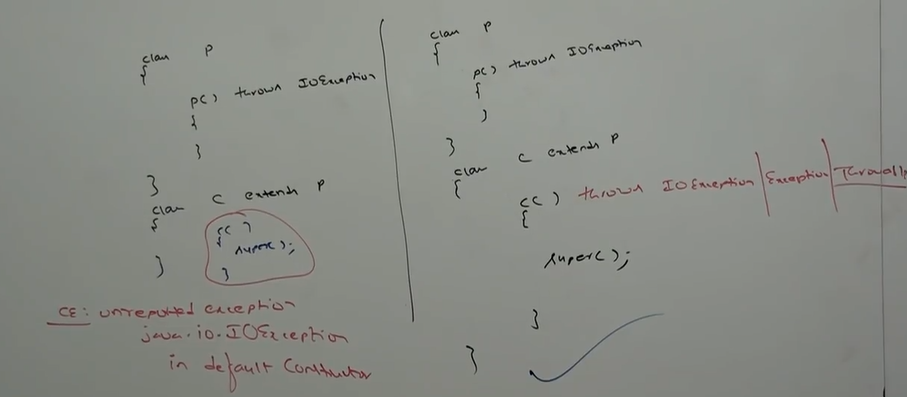 class P
{
P() throws IOException
{
}
}
class C extends P
{
C()
{
super();
}
}
CE: unreported exception
java.io.IOException
in default Constructor
class P
{
P() throws IOException
{
}
}
class C extends P
{
C() throws IOException | Exception |
{
super();
}
}